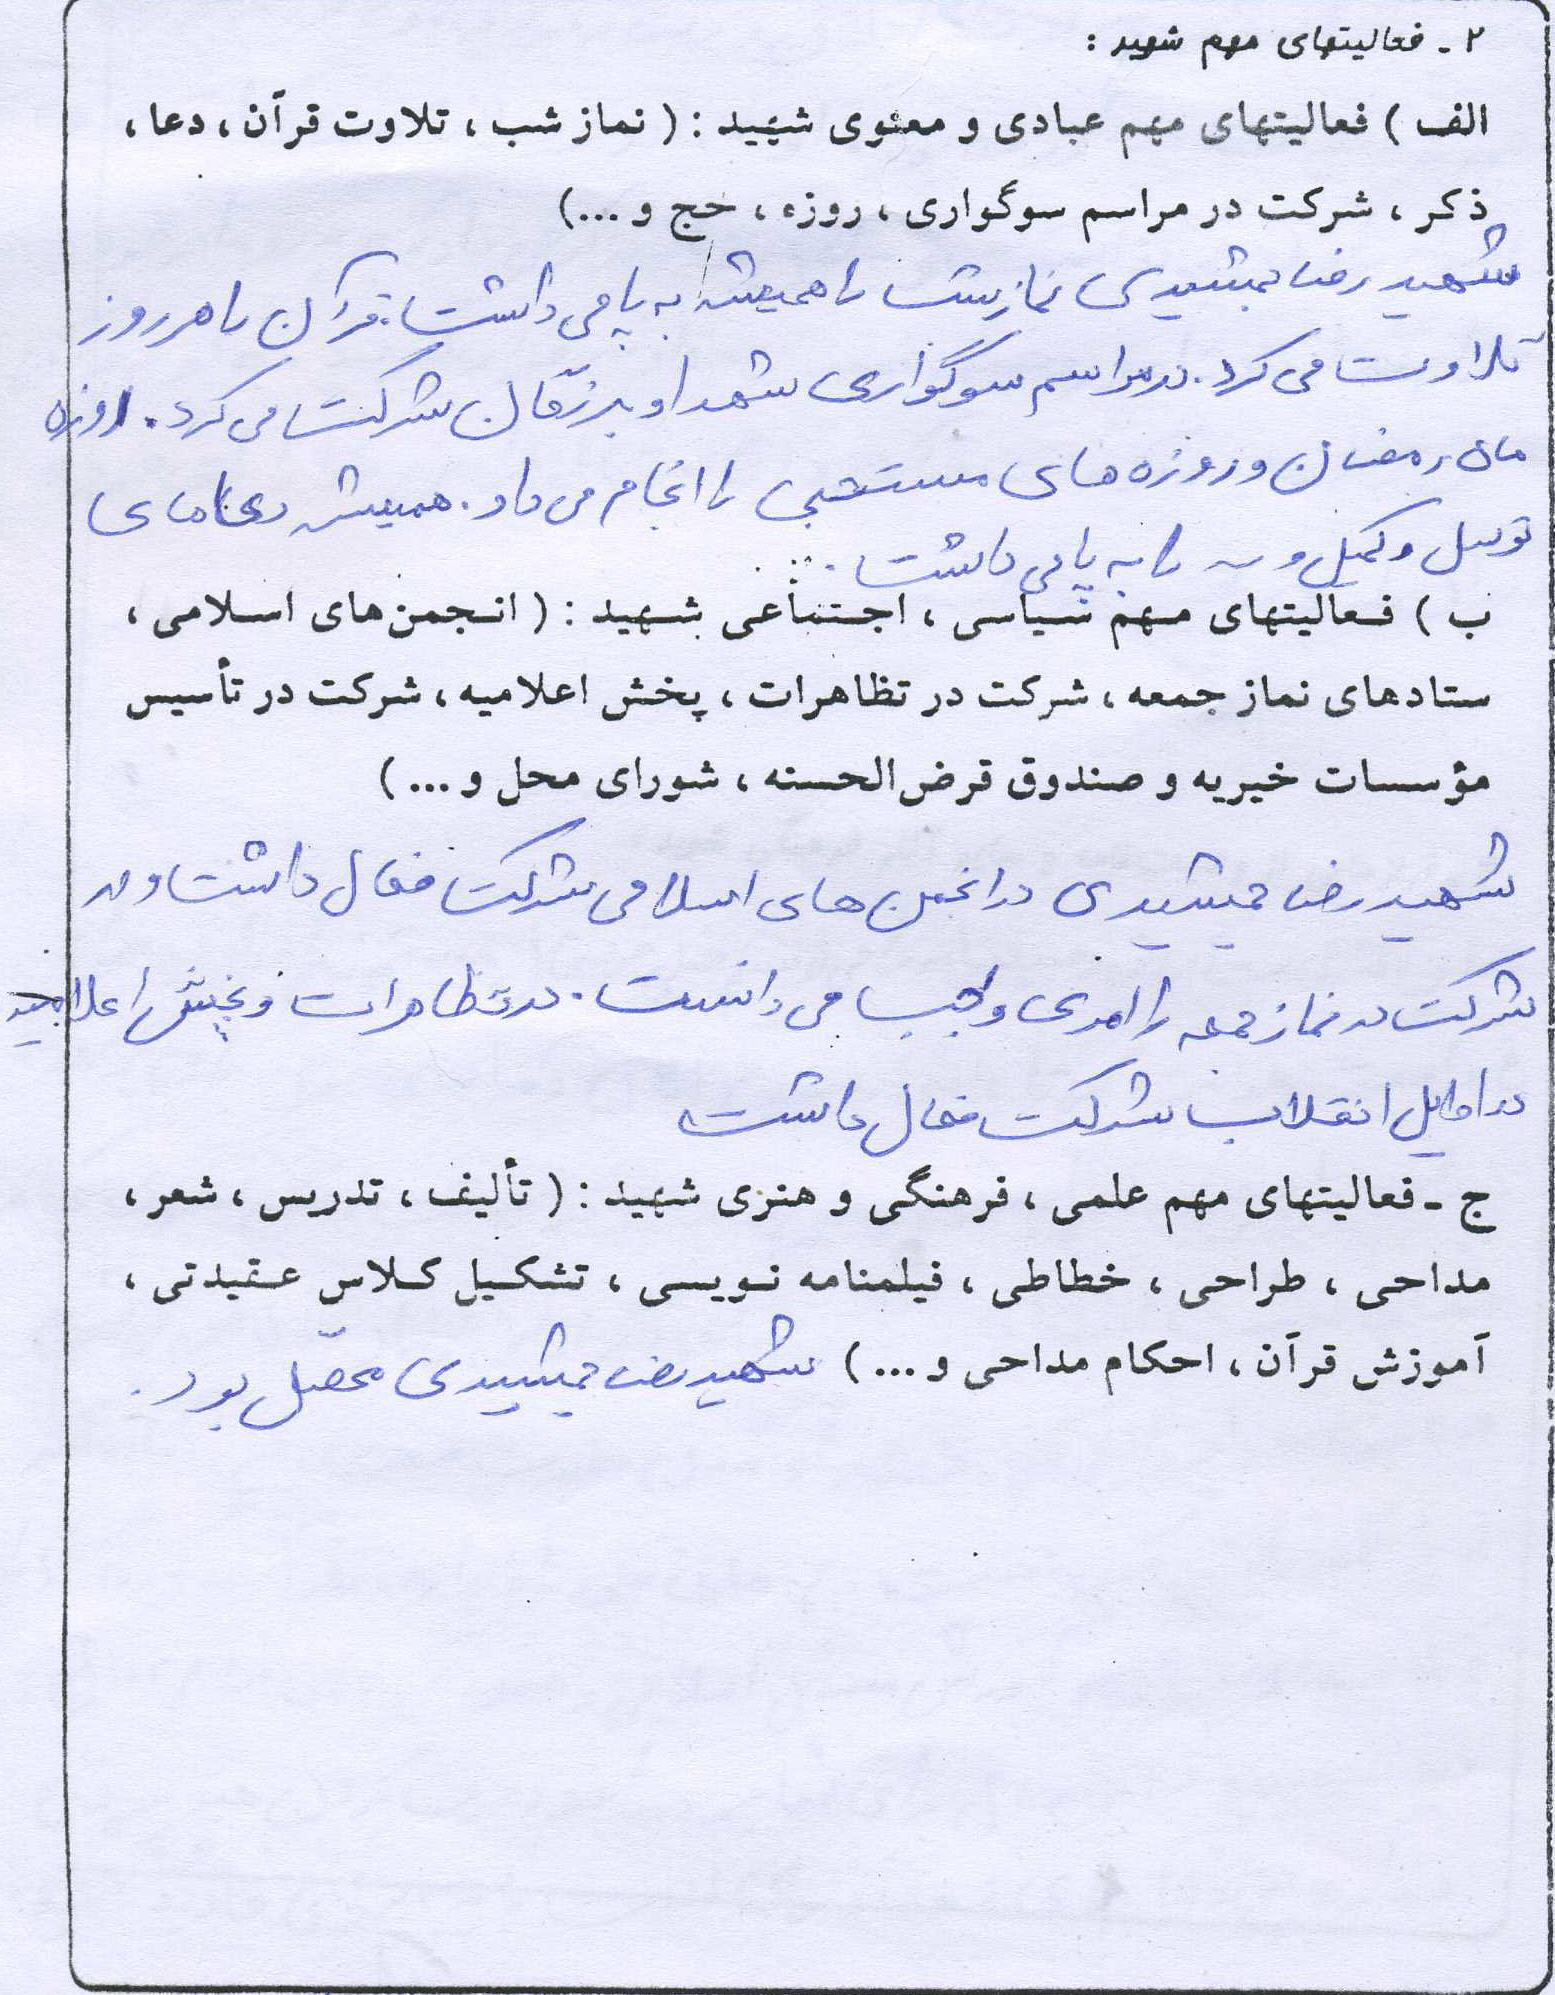 ۲ - فعالیتهای مهم شهید :
الف ) فعالیتهای مهم عبادی و معنوی شهید : ( نماز شب ، تلاوت قرآن ، دعا ،
ذکر ، شرکت در مراسم سوگواری ، روزه ، حج و ...)
شهید رضا جمشیدی نماز شب را همیشه به پا می داشت . قرآن را هر روز
تلاوت می کرد . در مراسم سوگواری شهدا و بزرگان شرکت می کرد . روزه
ماه رمضان و روزه های مستحبی را انجام می داد . همیشه دعاهای
توسل و کمیل و را به پا می داشت .
ب ) فعالیتهای مهم سیاسی ، اجتماعی شهید : ( انجمن‌های اسلامی ،
ستادهای نماز جمعه ، شرکت در تظاهرات ، پخش اعلامیه ، شرکت در تأسیس
مؤسسات خیریه و صندوق قرض‌الحسنه ، شورای محل و ... )
شهید رضا جمشیدی در انجمن های اسلامی شرکت فعال داشت و در
شرکت در نماز جمعه را امری واجب می دانست . در تظاهرات و پخش اعلامیه
در اوایل انقلاب شرکت فعال داشت
ج - فعالیتهای مهم علمی ، فرهنگی و هنری شهید : ( تألیف ، تدریس ، شعر ،
مداحی ، طراحی ، خطاطی ، فیلمنامه نویسی ، تشکیل کلاس عقیدتی ،
آموزش قرآن ، احکام مداحی و ... ) شهید رضا جمشیدی محصّل بود .